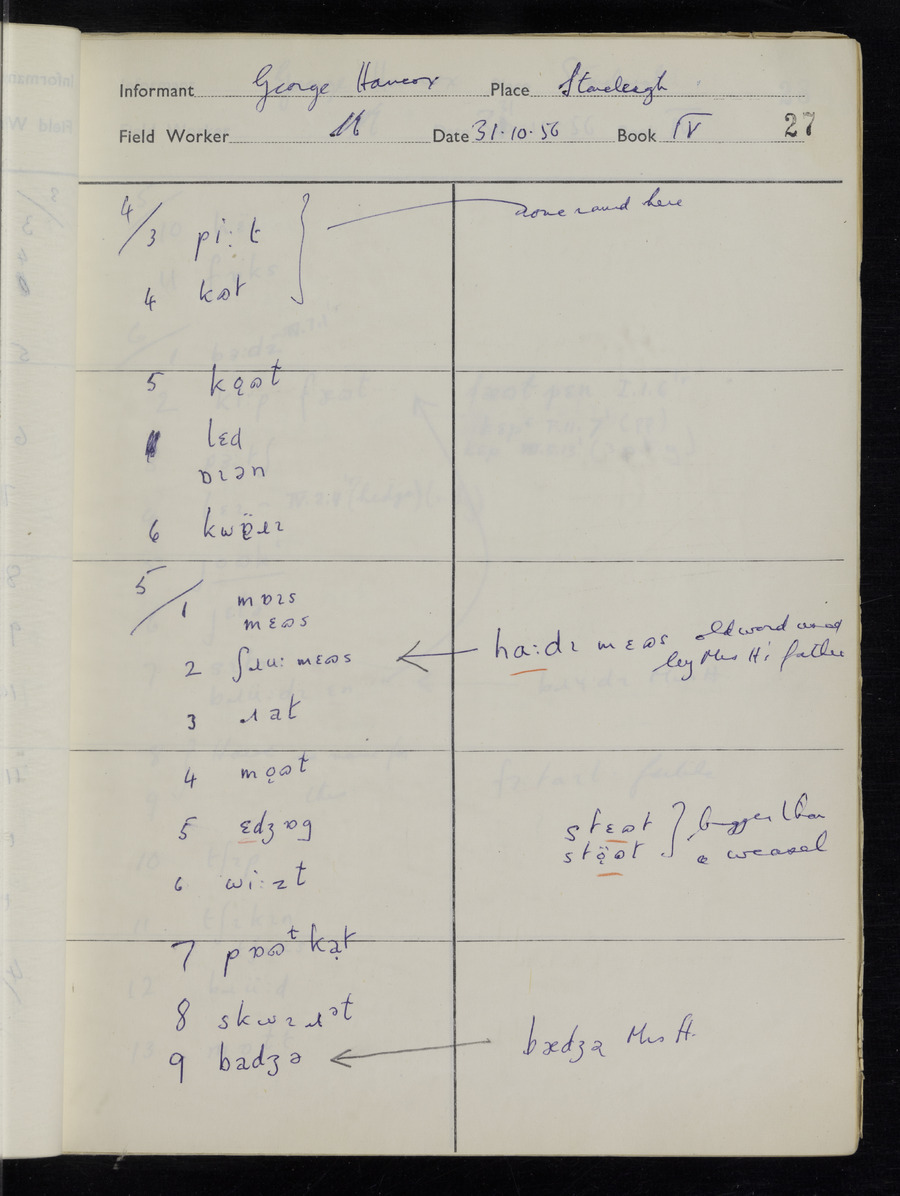 Informant George Hancox Place Stoneleigh
Field Worker Date 31·10·56 Book IV 27
4/3 pi:t
4 kɷt
none round here
5 kǫɷt
lɛd
ɒɪən
6 kwö̧ɹɪ
5/1 mɒɪs
mɛɷs
2 ʃɹu: mɛɷs
hɑ:dɪ mɛɷs old word used
by Mrs H's father
3 ɹat
4 mǫɷt
5 ɛdʒɒg
stɛɷt } bigger than
stö̧ɷt a weasel
6 wi:zt
7 pɒɷᵗkat
8 skwɪɹᵊt
9 badʒə
bædʒə Mrs H.